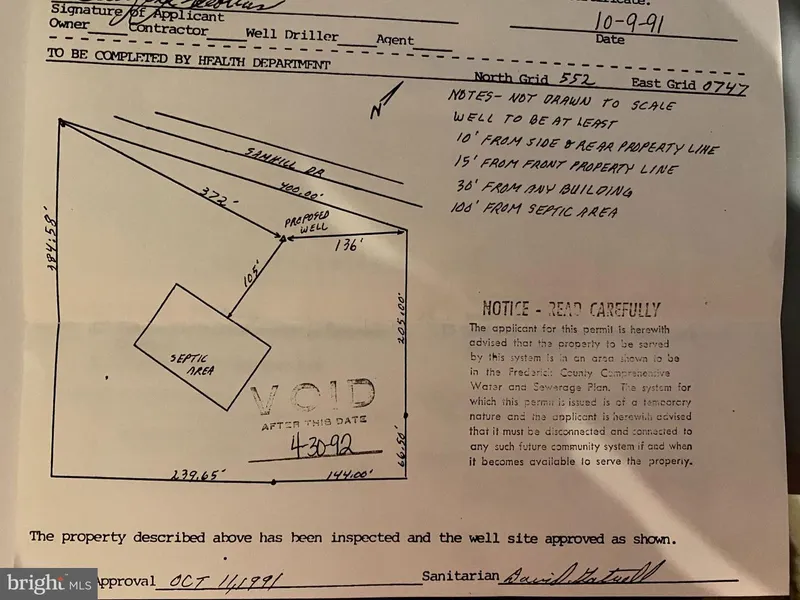 Signature of Applicant
10-9-91
Owner Contractor Well Driller Agent
Date
TO BE COMPLETED BY HEALTH DEPARTMENT
North Grid 552 East Grid 0747
N
NOTES- NOT DRAWN TO SCALE
WELL TO BE AT LEAST
10' FROM SIDE & REAR PROPERTY LINE
15' FROM FRONT PROPERTY LINE
30' FROM ANY BUILDING
100' FROM SEPTIC AREA
SAMHILL DR
400.00'
372'
PROPOSED
WELL
136'
384.58'
105'
205.00'
SEPTIC
AREA
VOID
AFTER THIS DATE
4-30-92
66.50'
239.65'
144.00'
NOTICE - READ CAREFULLY
The applicant for this permit is herewith
advised that the property to be served
by this system is in an area shown to be
in the Frederick County Comprehensive
Water and Sewerage Plan. The system for
which this permit is issued is of a temporary
nature and the applicant is herewith advised
that it must be disconnected and connected to
any such future community system if and when
it becomes available to serve the property.
The property described above has been inspected and the well site approved as shown.
Approval OCT 11, 1991 Sanitarian David
bright MLS